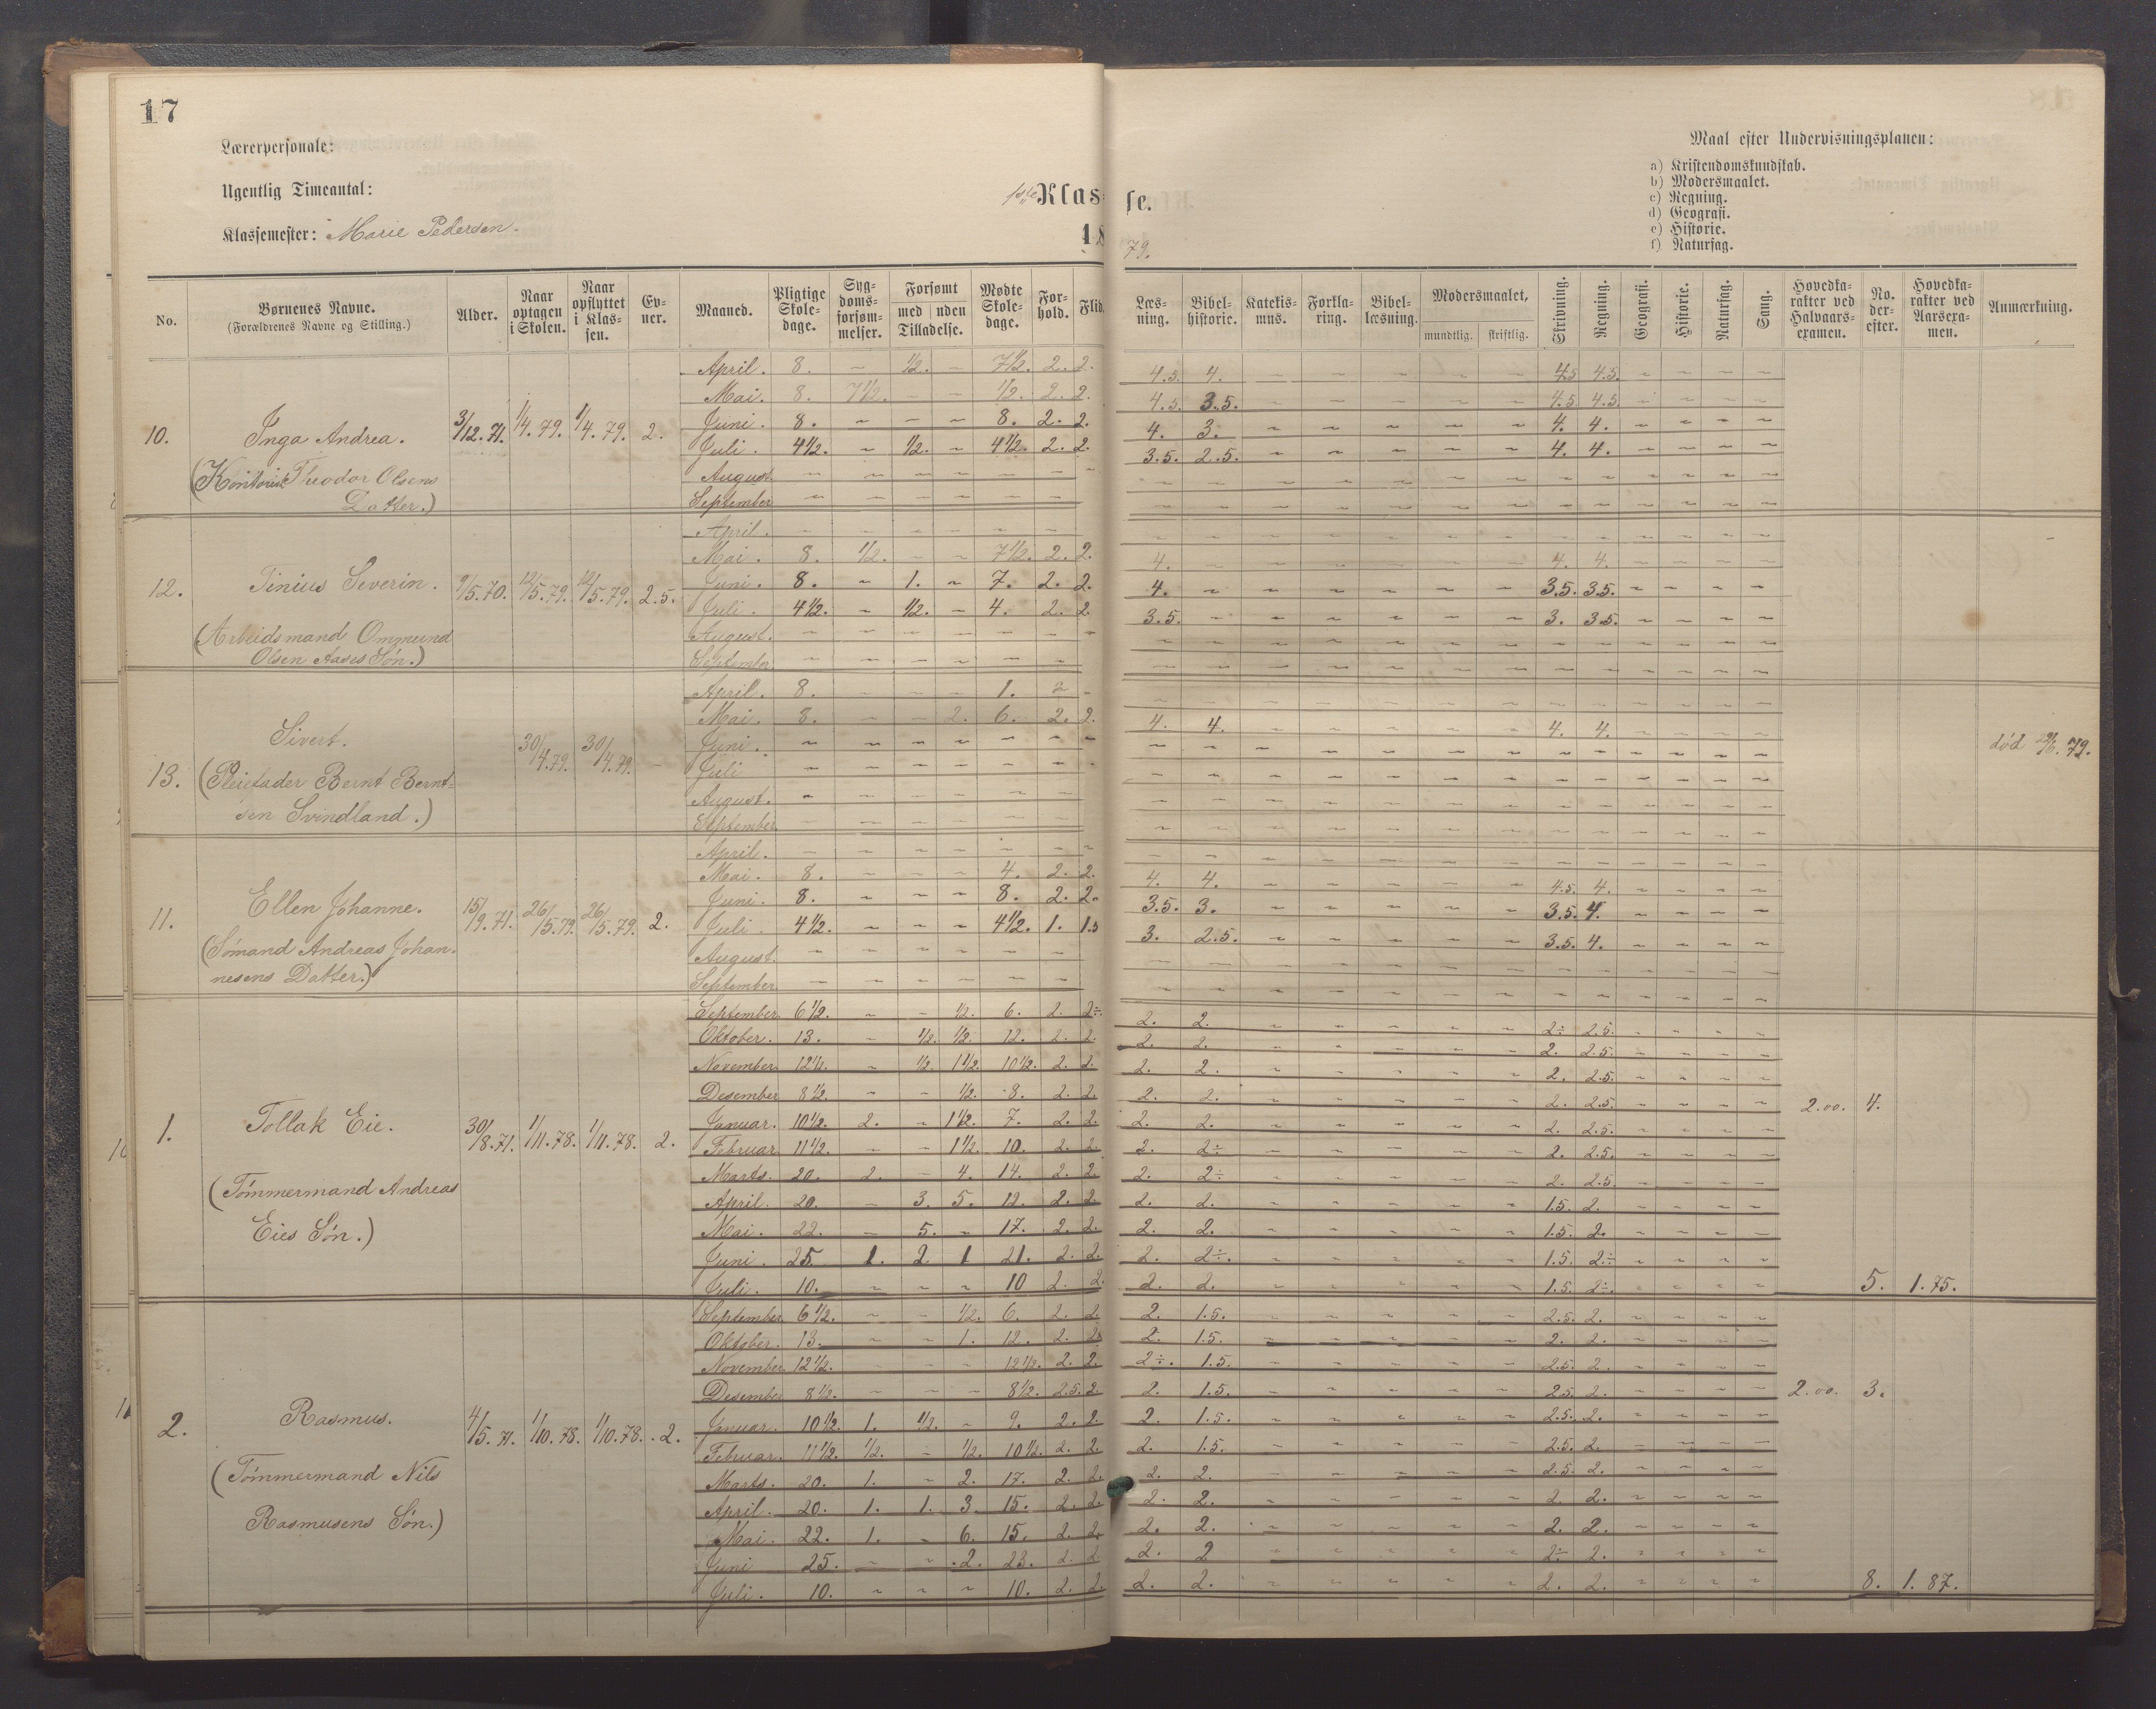 17
Lærerpersonale:
Ugentlig Timeantal:
Klassemester: Marie Pedersen.
1ste Klasse.
1879.
Maal efter Undervisningsplanen:
a) Kristendomskundskab.
b) Modersmaalet.
c) Regning.
d) Geografi.
e) Historie.
f) Naturfag.
No. Børnenes Navne. (Forældrenes Navne og Stilling.) Alder. Naar optagen i Skolen. Naar opflyttet i Klassen. Evner. Maaned. Pligtige Skoledage. Sygdomsforsømmelser. Forsømt med uden Tilladelse. Mødte Skoledage. Forhold. Flid. Læsning. Bibelhistorie. Katekismus. Forklaring. Bibellæsning. Modersmaalet, mundtlig. skriftlig. Skrivning. Regning. Geografi. Historie. Naturfag. Sang. Hovedkarakter ved Halvaarsexamen. No. derefter. Hovedkarakter ved Aarsexamen. Anmærkning.
April. 8. – 1/2. – 7 1/2. 2. 2. 4.5. 4. – – – – – 4.5 4.5. – – – –
Mai. 8. 7 1/2. – – 1/2. 2. 2. 4.5. 3.5. – – – – – 4.5. 4.5. – – – –
10. Inga Andrea. 3/12.71. 1/4.79. 1/4.79. 2. Juni. 8. – – – 8. 2. 2. 4. 3. – – – – – 4. 4. – – – –
Juli. 4 1/2. – 1/2. – 4 1/2. 2. 2. 3.5. 2.5. – – – – – 4. 4. – – – –
(Kontorist Theodor Olsens August. – – – – – – –
Datter.) September – – – – – –
April. – – – – – –
Mai. 8. 1/2. – – 7 1/2. 2. 2. 4. 4. 4.
12. Sinius Severin. 9/5.70. 12/5.79. 12/5.79. 2.5. Juni. 8. – 1. – 7. 2. 2. 4. – – – – – – 3.5. 3.5. – – – –
Juli. 4 1/2. – 1/2. – 4. 2. 2. 3.5. – – – – – – 3. 3.5. – – – –
(Arbeidsmand Ommund August. – – – – – – –
Olsen Aases Søn.) September – – – – – –
April. 8. – – – 1. 2 –
Mai. 8. – – 2. 6. 2. 2. 4. 4. – – – – – 4. 4. – – – –
Sivert. 30/4.79. 30/4.79. – Juni. – – – – – – – død 29/6.79.
13. (Pleiefader Bernt Bernt- Juli – – – – – – –
August. – – – – – –
sen Svindland.) September – – – – – –
April. – – – – – – –
Mai. 8. – – – 4. 2. 2. 4. 4. – – – – – 4.5. 4. – – – –
11. Ellen Johanne. 15/9.71. 26/5.79. 26/5.79. 2. Juni. 8. – – – 8. 2. 2. 3.5. 3. – – – – – 3.5. 4. – – – –
Juli. 4 1/2. – – – 4 1/2. 1. 1.5 3. 2.5. – – – – – 3.5. 4. – – – –
(Sømand Andreas Johan- August. – – – – – –
nesens Datter.) September – – – – – –
September 6 1/2. – – 1/2. 6. 2. 2÷. 2. 2. – – – – – 2÷ 2.5. – – – –
Oktober. 13. – 1/2. 1/2. 12. 2. 2. 2. 2. – – – – – 2. 2.5. – – – –
November 12 1/2. – 1/2. 1 1/2. 10 1/2. 2. 2. 2. 2. – – – – – 2. 2.5. – – – –
Desember 8 1/2. – – 1/2. 8. 2. 2. 2. 2. – – – – – 2. 2.5. – – – – 2.00. 4.
1. Tollak Eie. 30/8.71. 1/11.78. 1/11.78. 2. Januar. 10 1/2. 2. – 1 1/2. 7. 2. 2. 2. 2. – – – – – 2. 2.5. – – – –
Februar. 11 1/2. – – 1 1/2. 10. 2. 2. 2. 2÷ – – – – – 2. 2.5. – – – –
Marts. 20. 2. – 4. 14. 2. 2. 2. 2÷ – – – – – 2. 2.5. – – – –
(Tømmermand Andreas April. 20. – 3. 5. 12. 2. 2. 2. 2. – – – – – 1.5. 2. – – – –
Eies Søn.) Mai. 22. – 5. – 17. 2. 2. 2. 2. – – – – – 1.5. 2. – – – –
Juni. 25. 1. 2. 1 21. 2. 2. 2. 2÷. – – – – – 1.5. 2÷ – – – –
Juli. 10. – – – 10 2. 2. 2. 2. – – – – – 1.5. 2÷. – – – – 5. 1.75.
September 6 1/2. – – 1/2. 6. 2. 2. 2. 1.5. – – – – – 2.5. 2. – – – –
Oktober. 13. – – 1. 12. 2. 2. 2. 1.5. – – – – – 2. 2. – – – –
November 12 1/2. – – – 12 1/2. 2. 2. 2÷. 1.5. – – – – – 2.5. 2. – – – –
Desember 8 1/2. – – – 8 1/2. 2.5. 2. 2. 1.5. – – – – – 2.5. 2. – – – – 2.00. 3.
2. Rasmus. 4/5.71. 1/10.78. 1/10.78. 2. Januar. 10 1/2. 1. 1/2. – 9. 2. 2. 2. 1.5. – – – – – 2.5. 2. – – – –
Februar. 11 1/2. 1/2. – 1/2. 10 1/2. 2. 2. 2. 1.5. – – – – – 2.5. 2. – – – –
(Tømmermand Nils Marts. 20. 1. – 2. 17. 2. 2. 2. 2. – – – – – 2.5. 2. – – – –
April. 20. 1. 1. 3. 15. 2. 2. 2. 2. – – – – – 2. 2. – – – –
Rasmusens Søn.) Mai. 22. 1. – 6. 15. 2. 2. 2. 2. – – – – – 2. 2. – – – –
Juni 25. – – 2. 23. 2. 2. 2. 2 – – – – – 2÷ 2. – – – –
Juli. 10. – – – 10. 2. 2. 2. 2. – – – – – 2. 2. – – – – 8. 1.87.